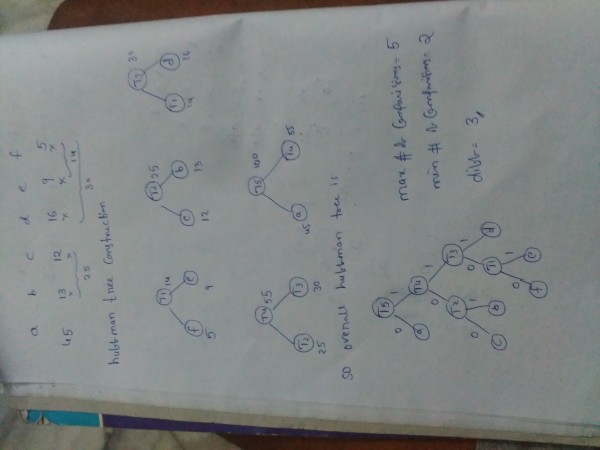 a b c d e f
45 13 12 16 9 5
25 14
30
huffman tree construction
T1 14
f e
5 9
T2 25
c b
12 13
T3 30
T1 d
14 16
T4 55
T2 T3
25 30
T5 100
a T4
45 55
so overall huffman tree is
T5
0 1
a T4
0 1
T2 T3
0 1 0 1
c b T1 d
0 1
f e
max # of comparisons = 5
min # of comparisons = 2
diff = 3,